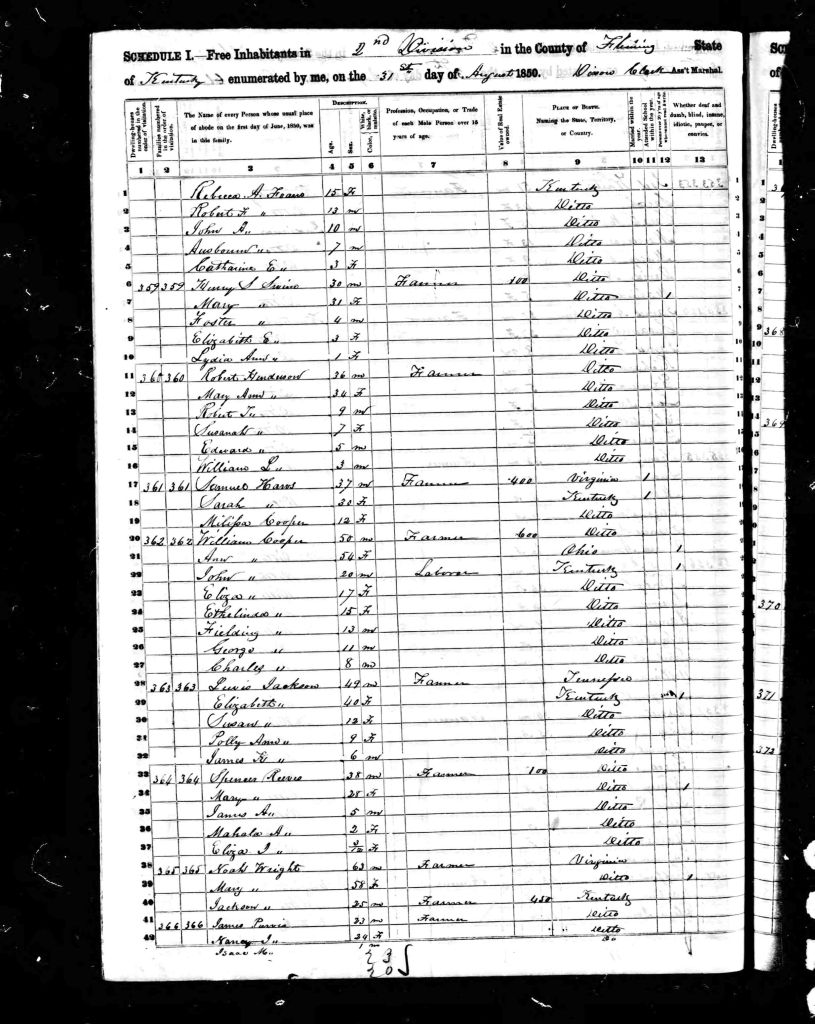 SCHEDULE I.—Free Inhabitants in 2nd Division in the County of Fleming State
of Kentucky enumerated by me, on the 31st day of August 1850. Clark Ass't Marshal.
Dwelling-houses numbered in the order of visitation. Families numbered in the order of visitation. The Name of every Person whose usual place of abode on the first day of June, 1850, was in this family. DESCRIPTION. Age. Sex. Color, White, black, or mulatto. Profession, Occupation, or Trade of each Male Person over 15 years of age. Value of Real Estate owned. PLACE OF BIRTH. Naming the State, Territory, or Country. Married within the year. Attended School within the year. Whether deaf and dumb, blind, insane, idiotic, pauper, or convict.
1 2 3 4 5 6 7 8 9 10 11 12 13
1 Rebecca A. 15 F Kentucky 1
2 Robert F " 13 m Ditto 2
3 John A " 10 m Ditto 3
4 " 7 m Ditto 4
5 Catharine E " 3 F Ditto 5
6 359 359 Henry S 30 m Farmer 100 Ditto 6
7 Mary " 31 F Ditto 1 7
8 Foster " 4 m Ditto 8
9 Elizabeth E " 3 F Ditto 9
10 Lydia Ann " 1 F Ditto 10
11 360 360 Robert Henderson 36 m Farmer Ditto 11
12 Mary Ann " 34 F Ditto 12
13 Robert " 9 m Ditto 13
14 Susanah " 7 F Ditto 14
15 Edward " 5 m Ditto 15
16 William L " 3 m Ditto 16
17 361 361 Samuel 37 m Farmer 400 Virginia 1 17
18 Sarah " 20 F Kentucky 1 18
19 Milissa Cooper 12 F Ditto 19
20 362 362 William Cooper 50 m Farmer 600 Ditto 20
21 Ann " 54 F Ohio 1 21
22 John " 20 m Laborer Kentucky 1 22
23 Eliza " 17 F Ditto 23
24 Ethelinda " 15 F Ditto 24
25 Fielding " 13 m Ditto 25
26 George " 11 m Ditto 26
27 Charles " 8 m Ditto 27
28 363 363 Lewis Jackson 49 m Farmer Tennessee 28
29 Elizabeth " 40 F Kentucky 1 29
30 Susan " 12 F Ditto 30
31 Polly Ann " 9 F Ditto 31
32 James " 6 m Ditto 32
33 364 364 Spencer Reeves 28 m Farmer 100 Ditto 33
34 Mary " 28 F Ditto 1 34
35 James A " 5 m Ditto 35
36 Mahala A " 2 F Ditto 36
37 Eliza J " F Ditto 37
38 365 365 Noah Wright 63 m Farmer Virginia 38
39 Mary " 58 F Ditto 1 39
40 Jackson " 25 m Farmer 450 Kentucky 40
41 366 366 James Purvis 23 m Farmer Ditto 41
42 Nancy J " 24 F Ditto 42
Isaac M " 1 m Do
23
20
368
369
370
371
372